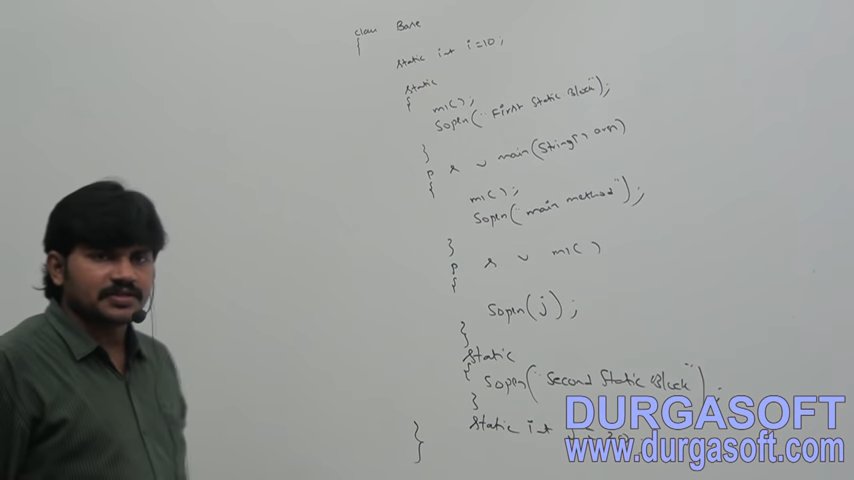 class Base
{
static int i=10;
static
{
m1();
Sopln("First Static Block");
}
p s v main(String[] args)
{
m1();
Sopln("main method");
}
p s v m1()
{
Sopln(j);
}
static
{
Sopln("Second Static Block");
}
static int j = 20;
}
DURGASOFT
www.durgasoft.com